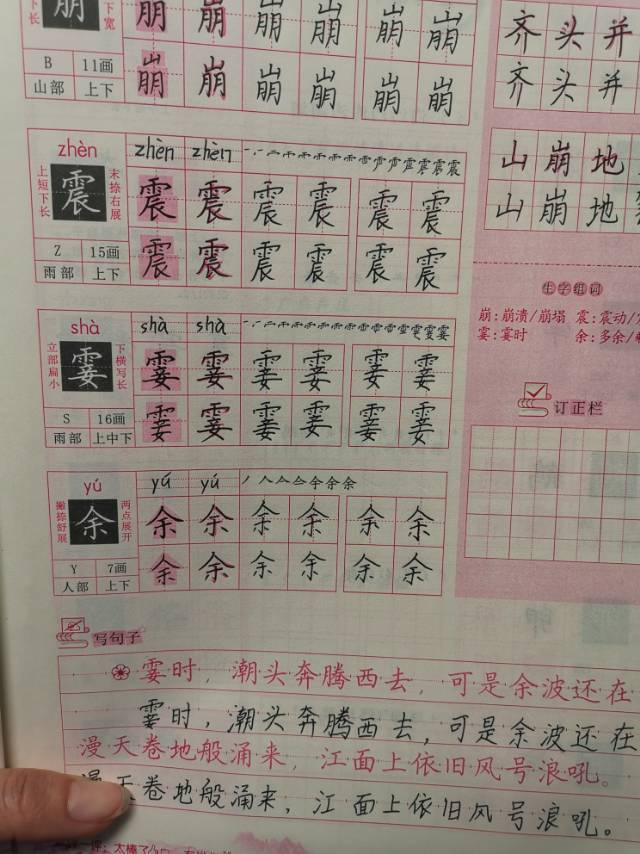 下长
崩
下宽
崩 崩 崩 崩 崩 崩
B 11画
山部 上下
崩 崩 崩 崩 崩 崩
zhèn
zhèn zhèn
上短下长
震
末捺右展
震 震 震 震 震 震
Z 15画
雨部 上下
震 震 震 震 震 震
shà
shà shà
立部扁小
霎
下横写长
霎 霎 霎 霎 霎 霎
S 16画
雨部 上中下
霎 霎 霎 霎 霎 霎
yú
yú yú
撇捺舒展
余
两点展开
余 余 余 余 余 余
Y 7画
人部 上下
余 余 余 余 余 余
写句子
霎时，潮头奔腾西去，可是余波还在
霎时，潮头奔腾西去，可是余波还在
漫天卷地般涌来，江面上依旧风号浪吼。
漫天卷地般涌来，江面上依旧风号浪吼。
齐头并
齐头并
山崩地
山崩地
生字组词
崩:崩溃/崩塌 震:震动/
霎:霎时 余:多余/
订正栏